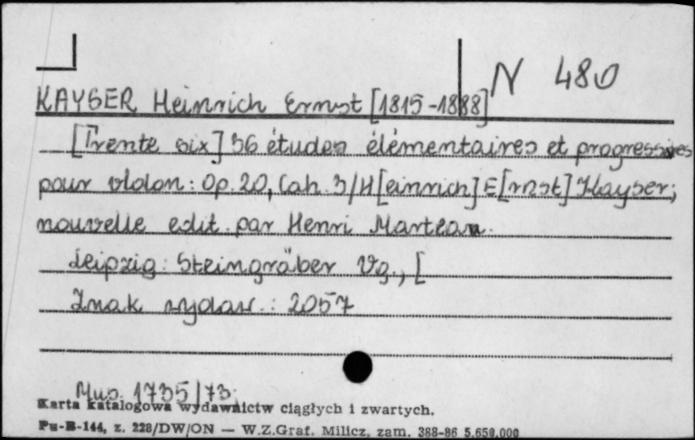 N 480
KAYSER Heinrich Ernst [1815-1888]
[Trente six] 36 études élémentaires et progressives
pour violon : Op. 20, Cah. 3 / H[einrich] E[rnst] Kayser ;
nouvelle edit. par Henri Marteau.
Leipzig : Steingräber Vg., [
Znak wydaw. : 2057
Mus. 1735/73
Karta katalogowa wydawnictw ciągłych i zwartych.
Pu-B-144, z. 228/DW/ON — W.Z.Graf. Milicz, zam. 388-86 5.650.000